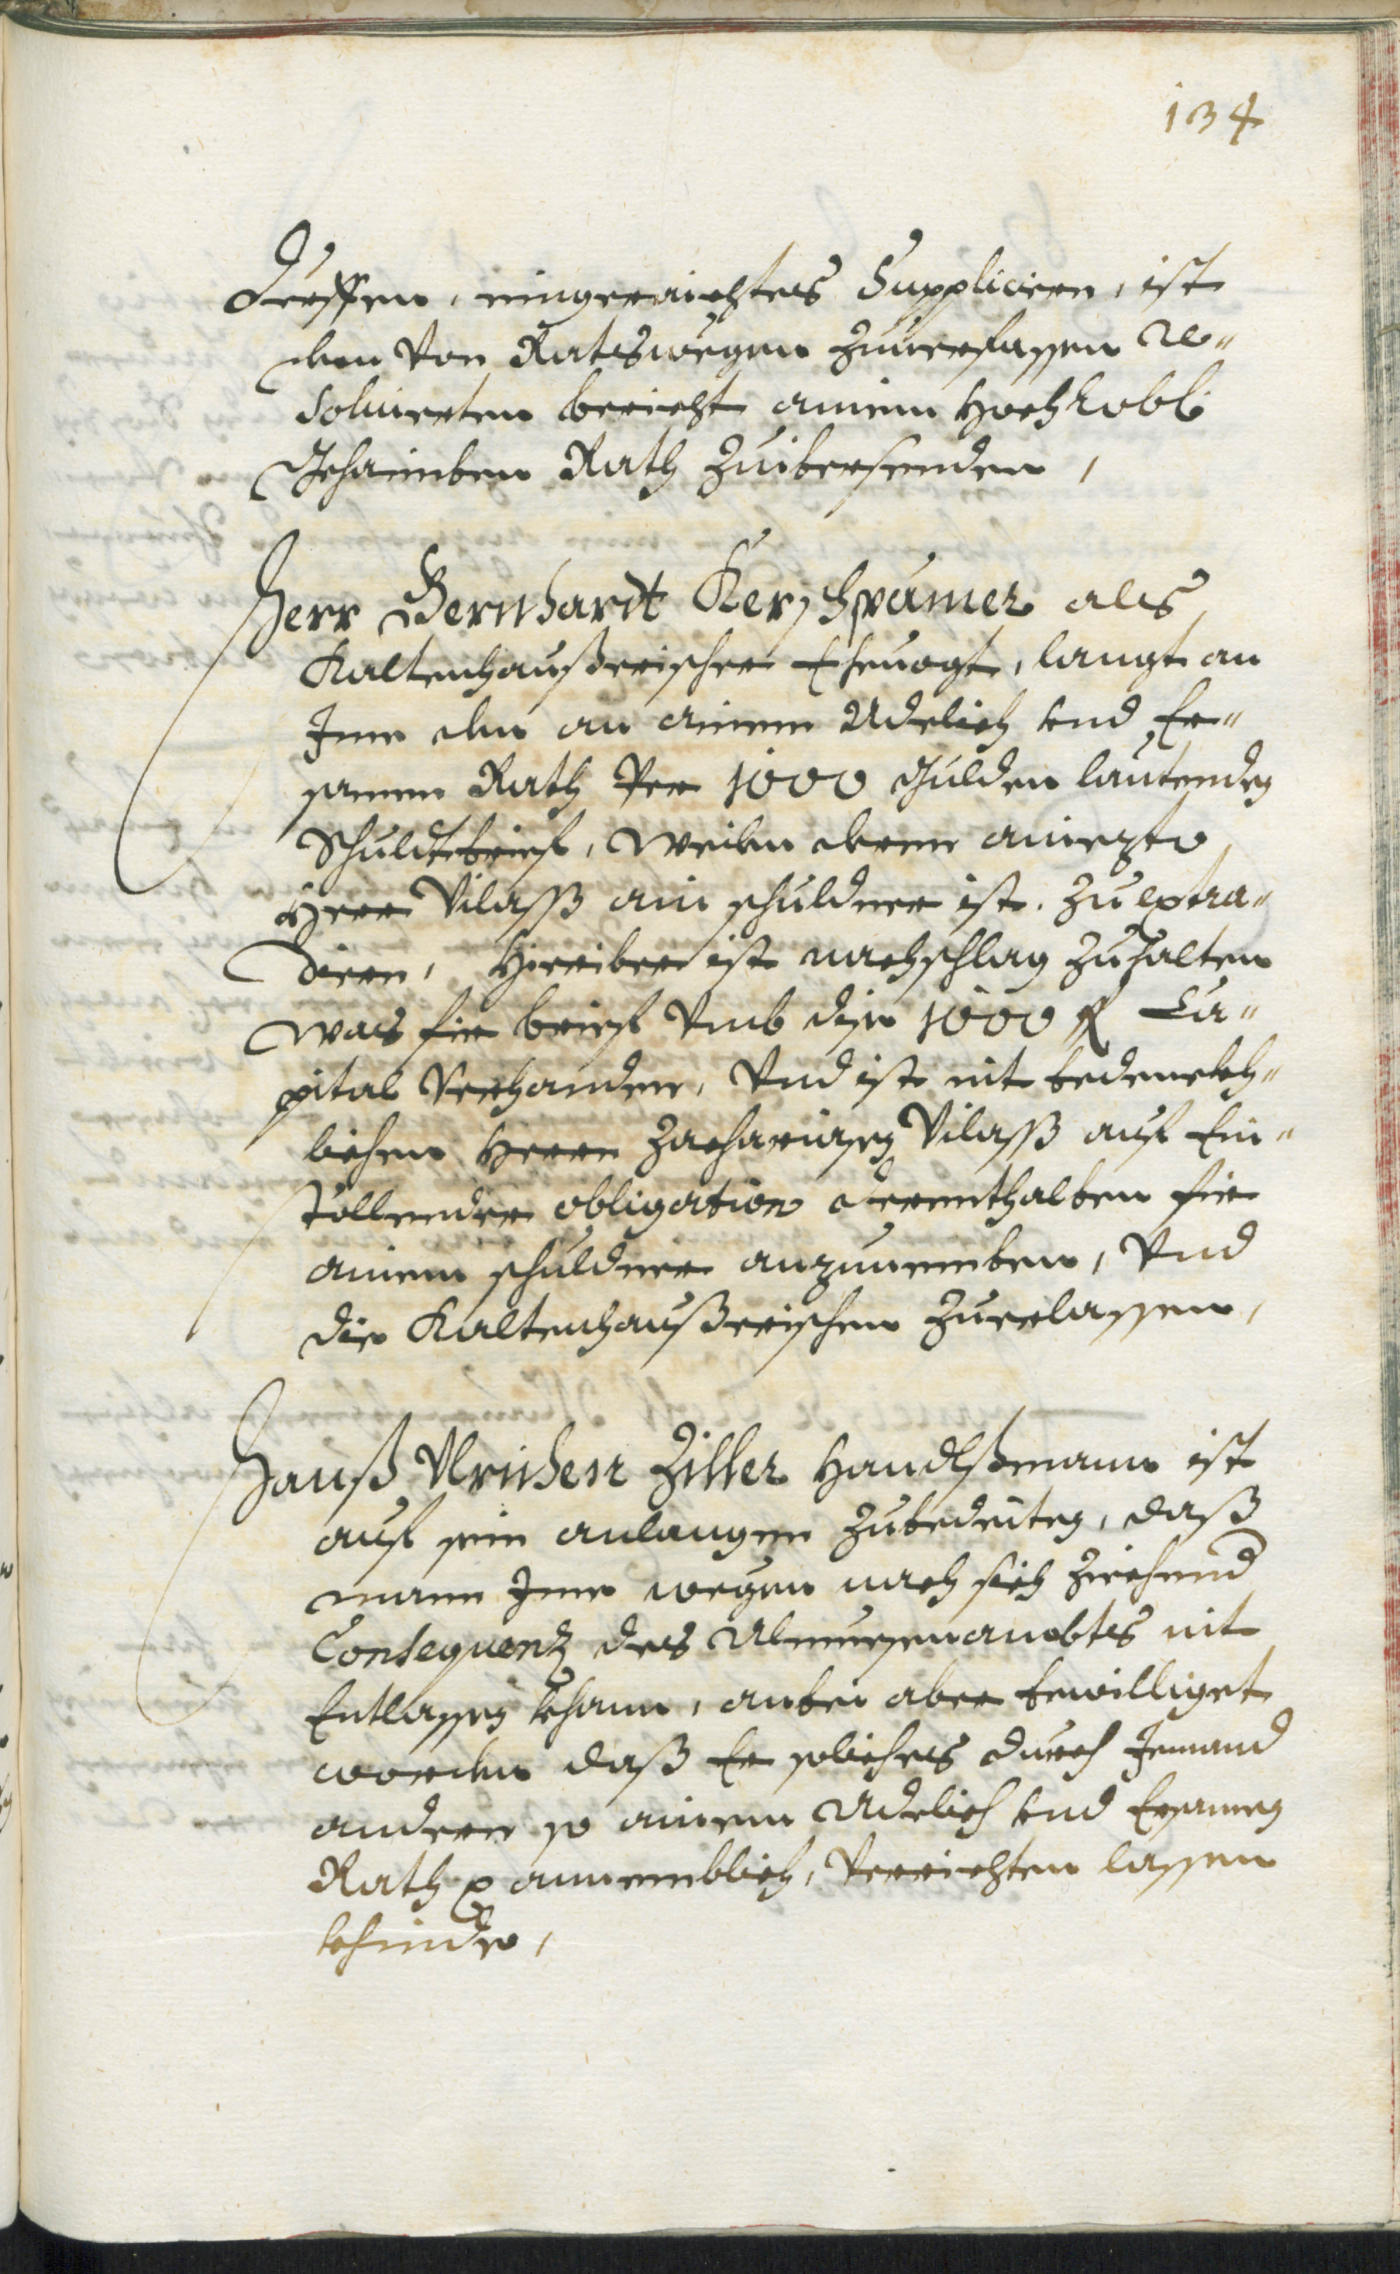 134
Treffen, eingeraichtes Suppliciern, ist
den Von Ratswegen zuuerfassen re-
soluierten bericht ainem Hochlobl:
Gehaimben Rath zuibersenden,
Herr Bernhardt Kerzschpamer als
Kaltenhaußerischer Ehevogt, langt an
Ime den an ainem Adelich und Er-
samen Rath Per 1000 Gulden lautenden
Schuldtbrief, weilen deme aniezto
Herr Vilaß ain schuldner ist, zu extra-
diern, Hieriber ist nachschlag zuhalten
was fir brief Vmb dise 1000 fl Ca-
pital Verhanden, Vnd ist nit bedenckh-
lichen Herrn Zachariasen Vilaß auf Ein-
stöllender obligation derenthalben fir
ainem schuldner anzunemben, Vnd
die Kaltenhaußerischen zuerlassen,
Hanß Vlrichen Ziller Handlßmann ist
auf sein anlangen zubedeiten, daß
mann Ime wegen nach sich ziehend
Consequenz des Almuesenambts nit
Entlassen khann, anbei aber bewilliget
worden daß Er soliches durch Jemand
andern so ainem Adelich und Ersamen
Rath annemblich, Verrichten lassen
khinde,